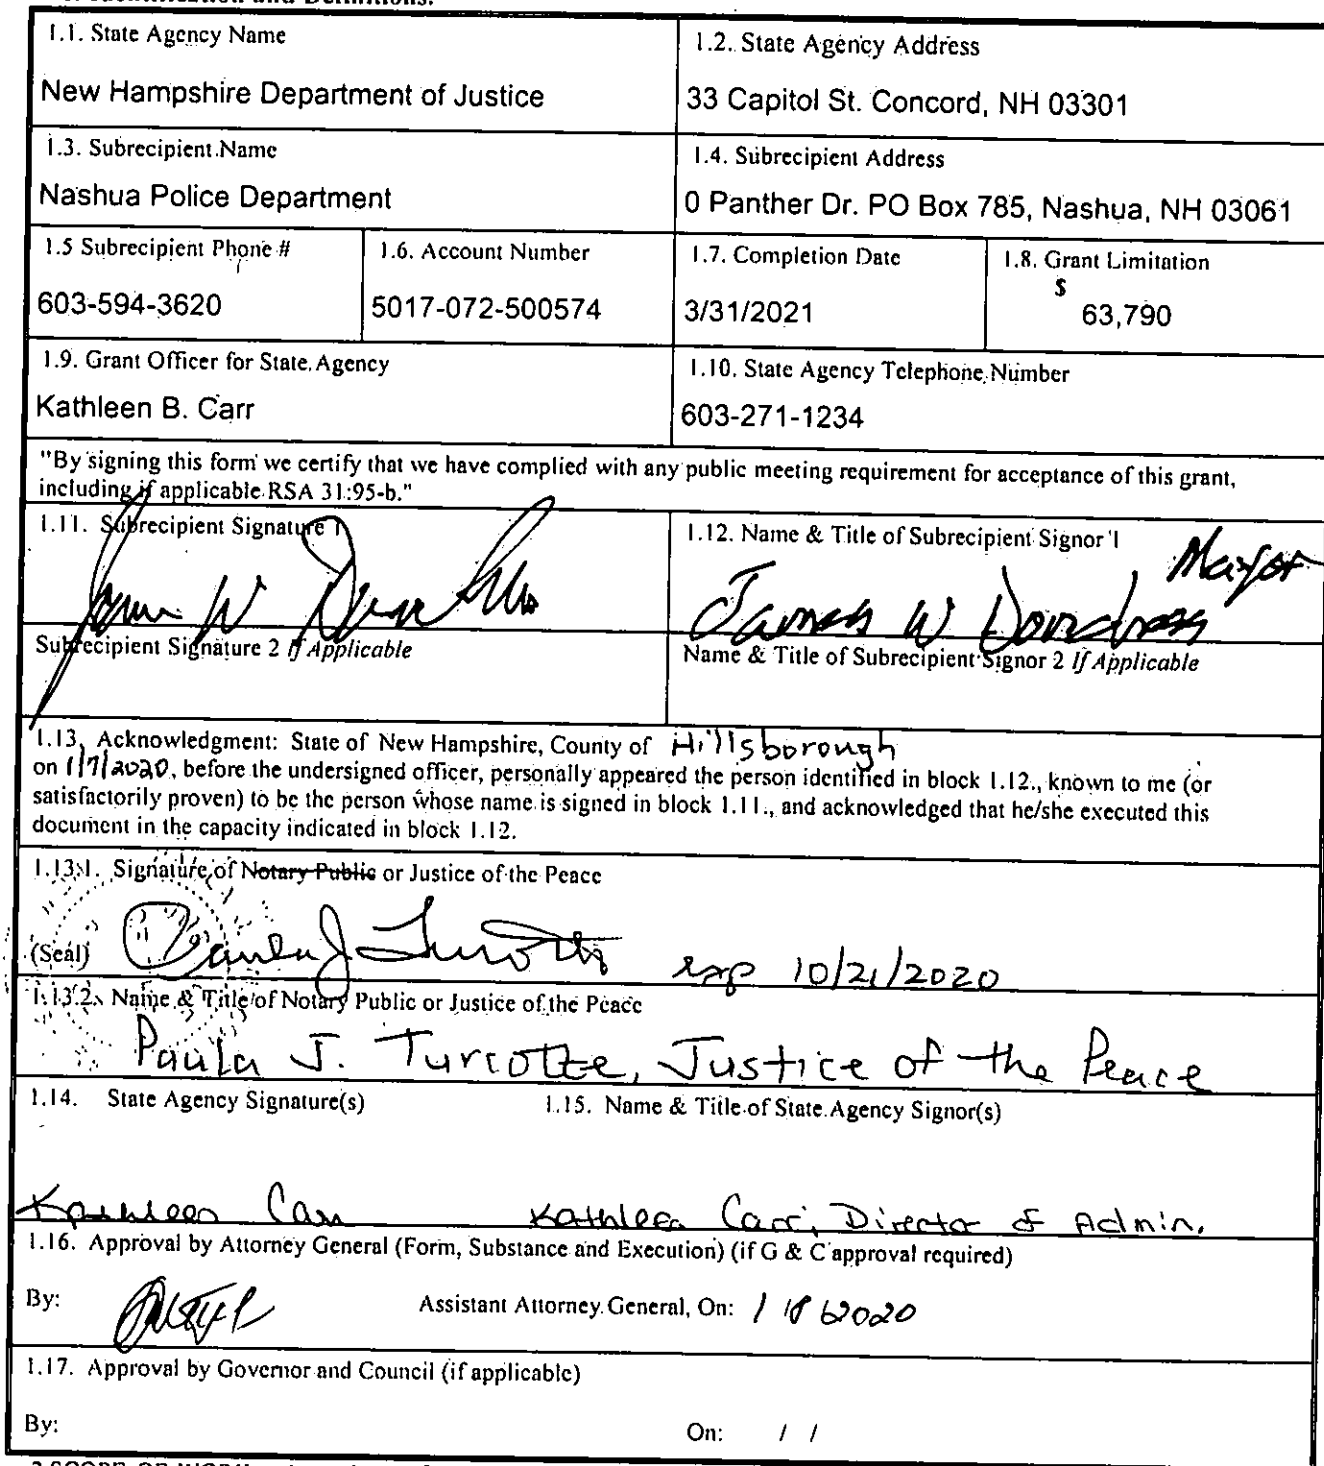 1.1. State Agency Name
New Hampshire Department of Justice
1.2. State Agency Address
33 Capitol St. Concord, NH 03301
1.3. Subrecipient Name
Nashua Police Department
1.4. Subrecipient Address
0 Panther Dr. PO Box 785, Nashua, NH 03061
1.5 Subrecipient Phone #
603-594-3620
1.6. Account Number
5017-072-500574
1.7. Completion Date
3/31/2021
1.8. Grant Limitation
$ 63,790
1.9. Grant Officer for State Agency
Kathleen B. Carr
1.10. State Agency Telephone Number
603-271-1234
"By signing this form we certify that we have complied with any public meeting requirement for acceptance of this grant,
including if applicable RSA 31:95-b."
1.11. Subrecipient Signature 1
1.12. Name & Title of Subrecipient Signor 1
Mayor
James W
Subrecipient Signature 2 If Applicable
Name & Title of Subrecipient Signor 2 If Applicable
1.13. Acknowledgment: State of New Hampshire, County of Hillsborough
on 1/7/2020, before the undersigned officer, personally appeared the person identified in block 1.12., known to me (or
satisfactorily proven) to be the person whose name is signed in block 1.11., and acknowledged that he/she executed this
document in the capacity indicated in block 1.12.
1.13.1. Signature of Notary Public or Justice of the Peace
(Seal) Paula J Turcotte exp 10/21/2020
1.13.2. Name & Title of Notary Public or Justice of the Peace
Paula J. Turcotte, Justice of the Peace
1.14. State Agency Signature(s)
1.15. Name & Title of State Agency Signor(s)
Kathleen Carr
Kathleen Carr, Director of Admin.
1.16. Approval by Attorney General (Form, Substance and Execution) (if G & C approval required)
By:
Assistant Attorney General, On: 1 2020
1.17. Approval by Governor and Council (if applicable)
By:
On: / /